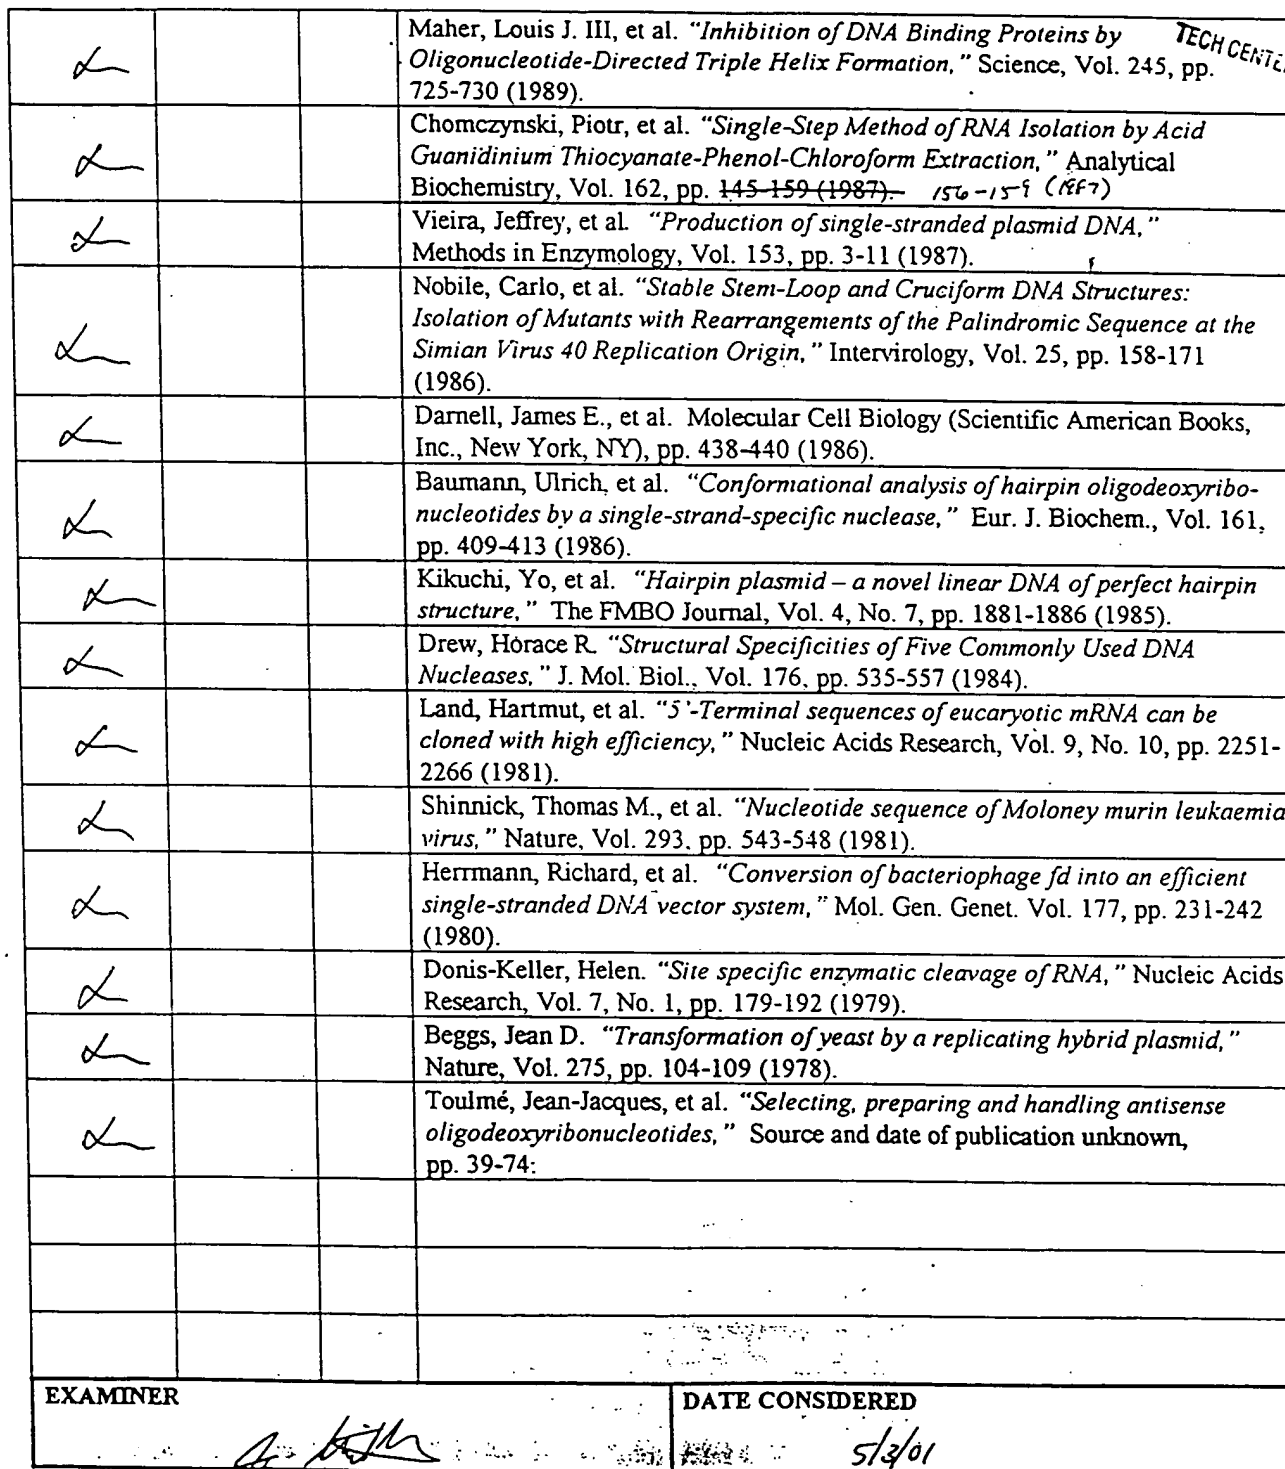 Maher, Louis J. III, et al. "Inhibition of DNA Binding Proteins by
TECH CENTE
Oligonucleotide-Directed Triple Helix Formation," Science, Vol. 245, pp.
725-730 (1989).
Chomczynski, Piotr, et al. "Single-Step Method of RNA Isolation by Acid
Guanidinium Thiocyanate-Phenol-Chloroform Extraction," Analytical
Biochemistry, Vol. 162, pp. 145-159 (1987). 156-159 (1987)
Vieira, Jeffrey, et al. "Production of single-stranded plasmid DNA,"
Methods in Enzymology, Vol. 153, pp. 3-11 (1987).
Nobile, Carlo, et al. "Stable Stem-Loop and Cruciform DNA Structures:
Isolation of Mutants with Rearrangements of the Palindromic Sequence at the
Simian Virus 40 Replication Origin," Intervirology, Vol. 25, pp. 158-171
(1986).
Darnell, James E., et al. Molecular Cell Biology (Scientific American Books,
Inc., New York, NY), pp. 438-440 (1986).
Baumann, Ulrich, et al. "Conformational analysis of hairpin oligodeoxyribo-
nucleotides by a single-strand-specific nuclease," Eur. J. Biochem., Vol. 161,
pp. 409-413 (1986).
Kikuchi, Yo, et al. "Hairpin plasmid – a novel linear DNA of perfect hairpin
structure," The FMBO Journal, Vol. 4, No. 7, pp. 1881-1886 (1985).
Drew, Horace R. "Structural Specificities of Five Commonly Used DNA
Nucleases," J. Mol. Biol., Vol. 176, pp. 535-557 (1984).
Land, Hartmut, et al. "5'-Terminal sequences of eucaryotic mRNA can be
cloned with high efficiency," Nucleic Acids Research, Vol. 9, No. 10, pp. 2251-
2266 (1981).
Shinnick, Thomas M., et al. "Nucleotide sequence of Moloney murin leukaemia
virus," Nature, Vol. 293, pp. 543-548 (1981).
Herrmann, Richard, et al. "Conversion of bacteriophage fd into an efficient
single-stranded DNA vector system," Mol. Gen. Genet. Vol. 177, pp. 231-242
(1980).
Donis-Keller, Helen. "Site specific enzymatic cleavage of RNA," Nucleic Acids
Research, Vol. 7, No. 1, pp. 179-192 (1979).
Beggs, Jean D. "Transformation of yeast by a replicating hybrid plasmid,"
Nature, Vol. 275, pp. 104-109 (1978).
Toulmé, Jean-Jacques, et al. "Selecting, preparing and handling antisense
oligodeoxyribonucleotides," Source and date of publication unknown,
pp. 39-74:
EXAMINER
DATE CONSIDERED
5/3/01